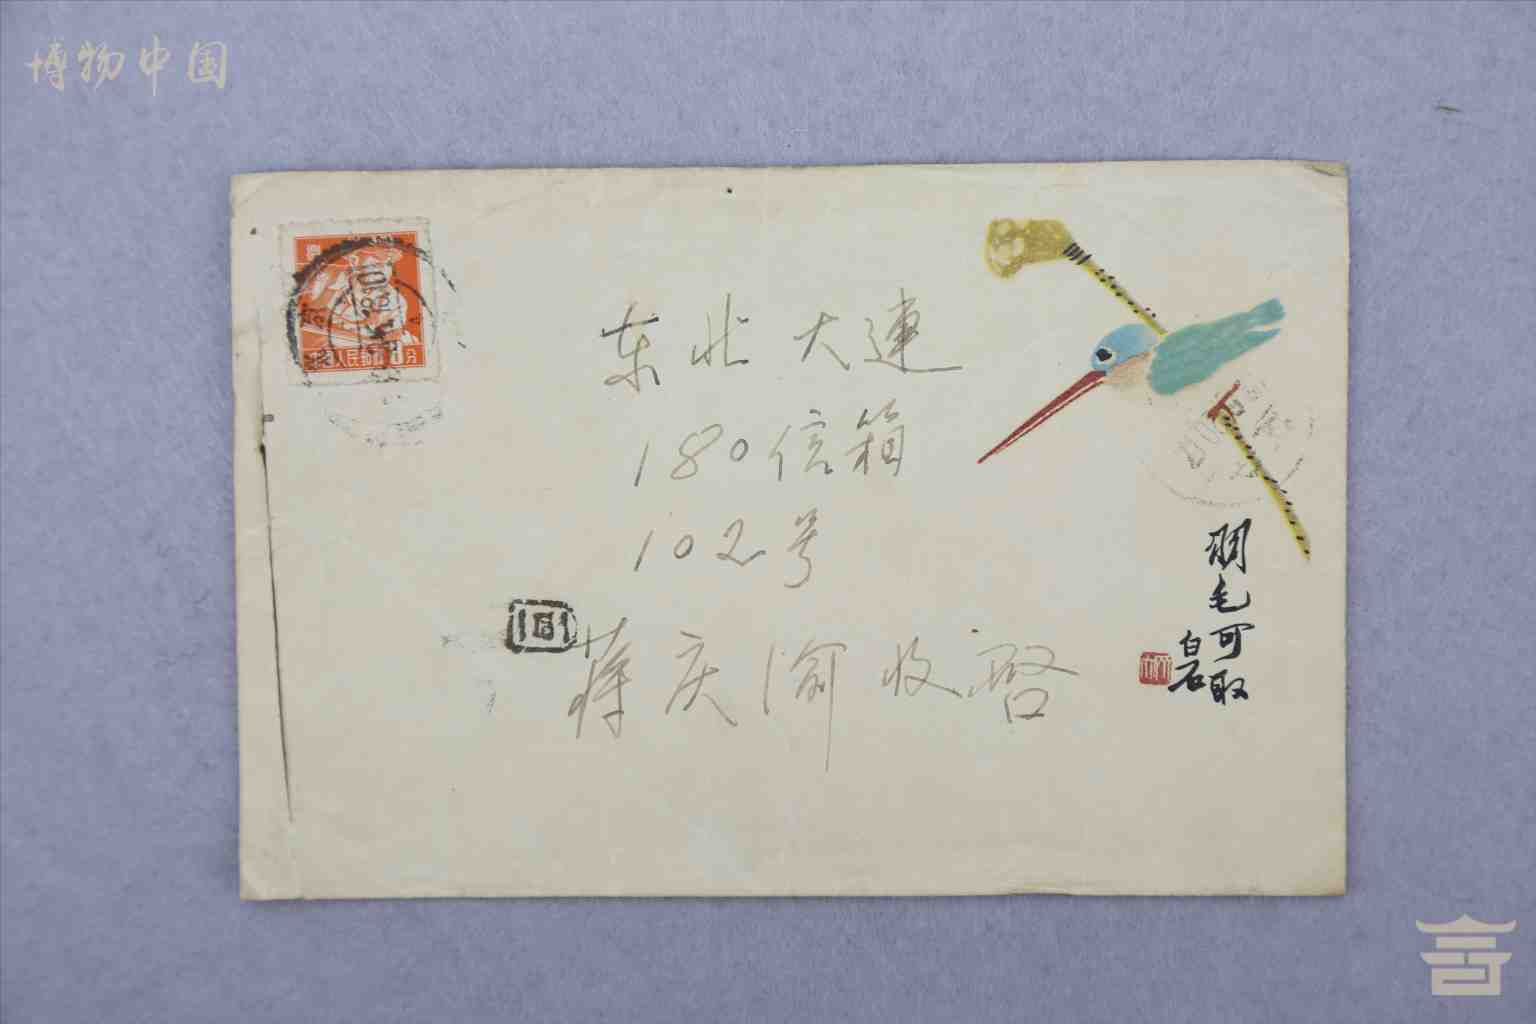 博物中国
中国人民邮政 8分
东北大連
180信箱
102号
蒋庆渝收啓
羽毛可取
白石